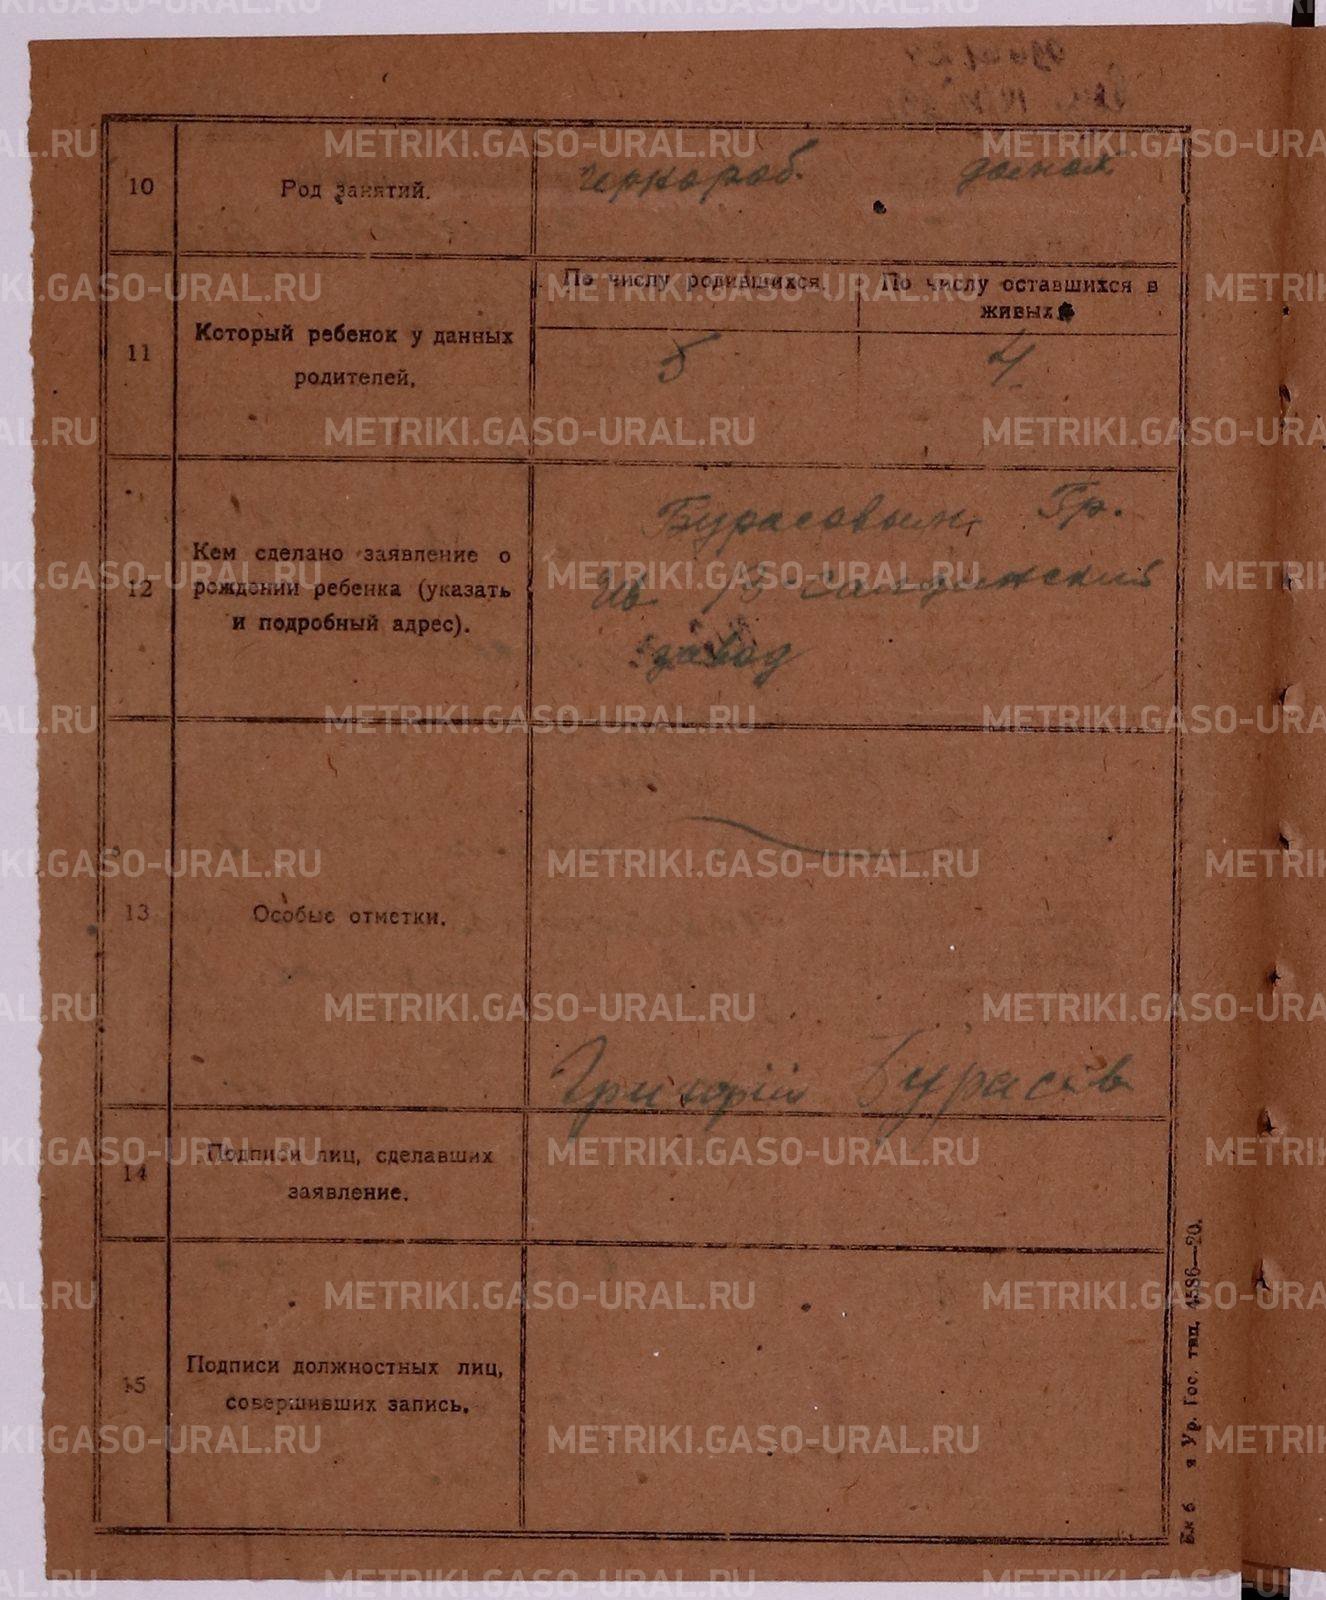 10
Род занятий.
чернораб. домох.
11
Который ребенок у данных
родителей.
По числу родившихся.
По числу оставшихся в
живых.
5
4
12
Кем сделано заявление о
рождении ребенка (указать
и подробный адрес).
Бурасовым Гр.
Ив. В-салдинский
завод
13
Особые отметки.
Григорий Бурасов
14
Подписи лиц, сделавших
заявление.
15
Подписи должностных лиц,
совершивших запись.
я Ур. Гос. тип. 4586—20.
METRIKI.GASO-URAL.RU